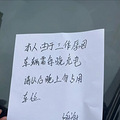 本人由于工作原因
车辆需要晚充电
请以白晚上勿占用
车位
谢谢